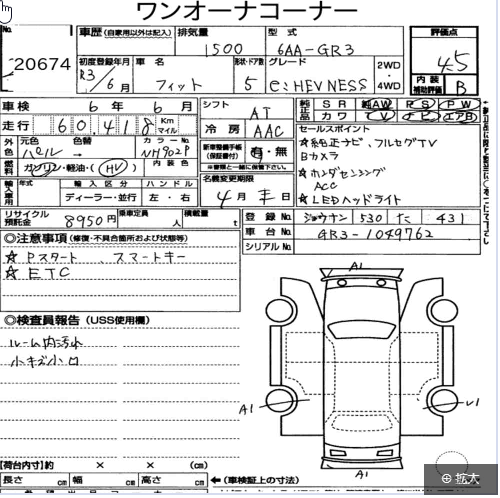 ワンオーナコーナー
No. 20674
車歴 (自家用以外は記入) 排気量 1500 型式 6AA-GR3 評価点 4.5
初度登録年月 R3/6月 車名 フィット 形状・ドア数 5 グレード e:HEV NESS 2WD・4WD 内装補助評価 B
車検 6年 6月 シフト AT 純正品 SR 純AW PS PW
走行 60.418 Km マイル 冷房 AAC カワ TV ナビ エアB
外色 元色 パール 色替 → カラーNo. NH902P 新車整備手帳(保証書付) 有・無
セールスポイント
☆純正ナビ、フルセグTV
Bカメラ
☆ホンダセンシング
ACC
☆LEDヘッドライト
燃料 ガソリン・軽油・(HV) 内装色
輸入車 年式 輸入区分 ディーラー・並行 ハンドル 左・右 名義変更期限 4月末日
リサイクル預託金 8950円 乗車定員 人 積載量 t
登録No. 530 た 431
車台No. GR3-1049762
シリアルNo.
◎注意事項 (修復・不具合箇所および状態等)
☆Pスタート、スマートキー
☆ETC
◎検査員報告 (USS使用欄)
ルーム内汚れ
小キズ小凹
A1
A1
A1
【荷台内寸】 × × (cm)
長さ cm 幅 cm 高さ cm ←(車検証上の寸法)
拡大